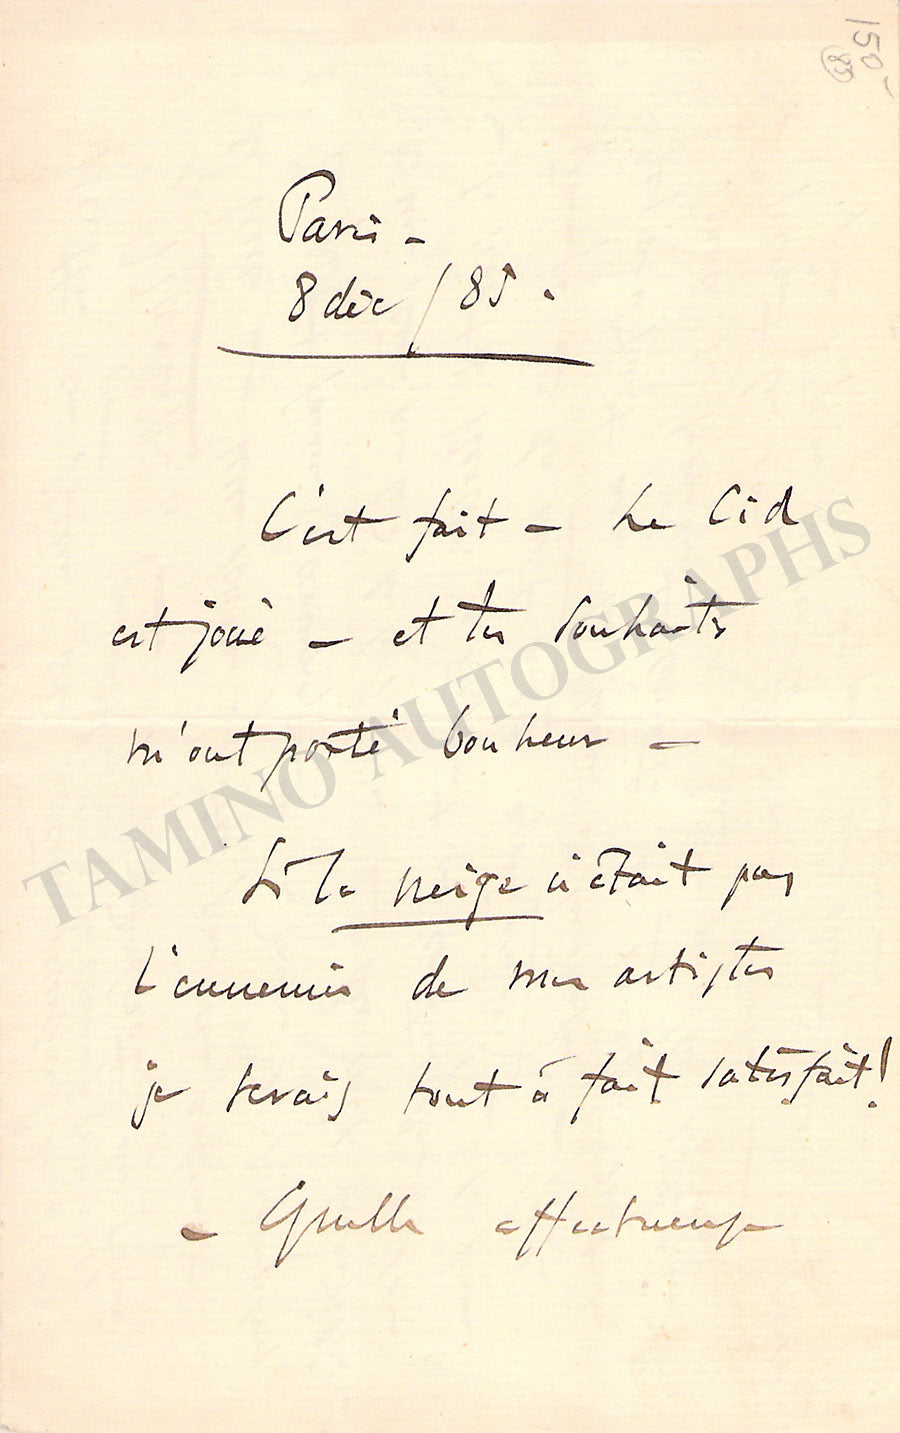 150-
83
Paris -
8 déc / 85.
C'est fait - Le Cid
est joué - et tes souhaits
m'ont porté bonheur -
Si la neige n'était pas
l'ennemie de mes artistes
je serais tout à fait satisfait!
- Quelle affectueuse
TAMINO AUTOGRAPHS